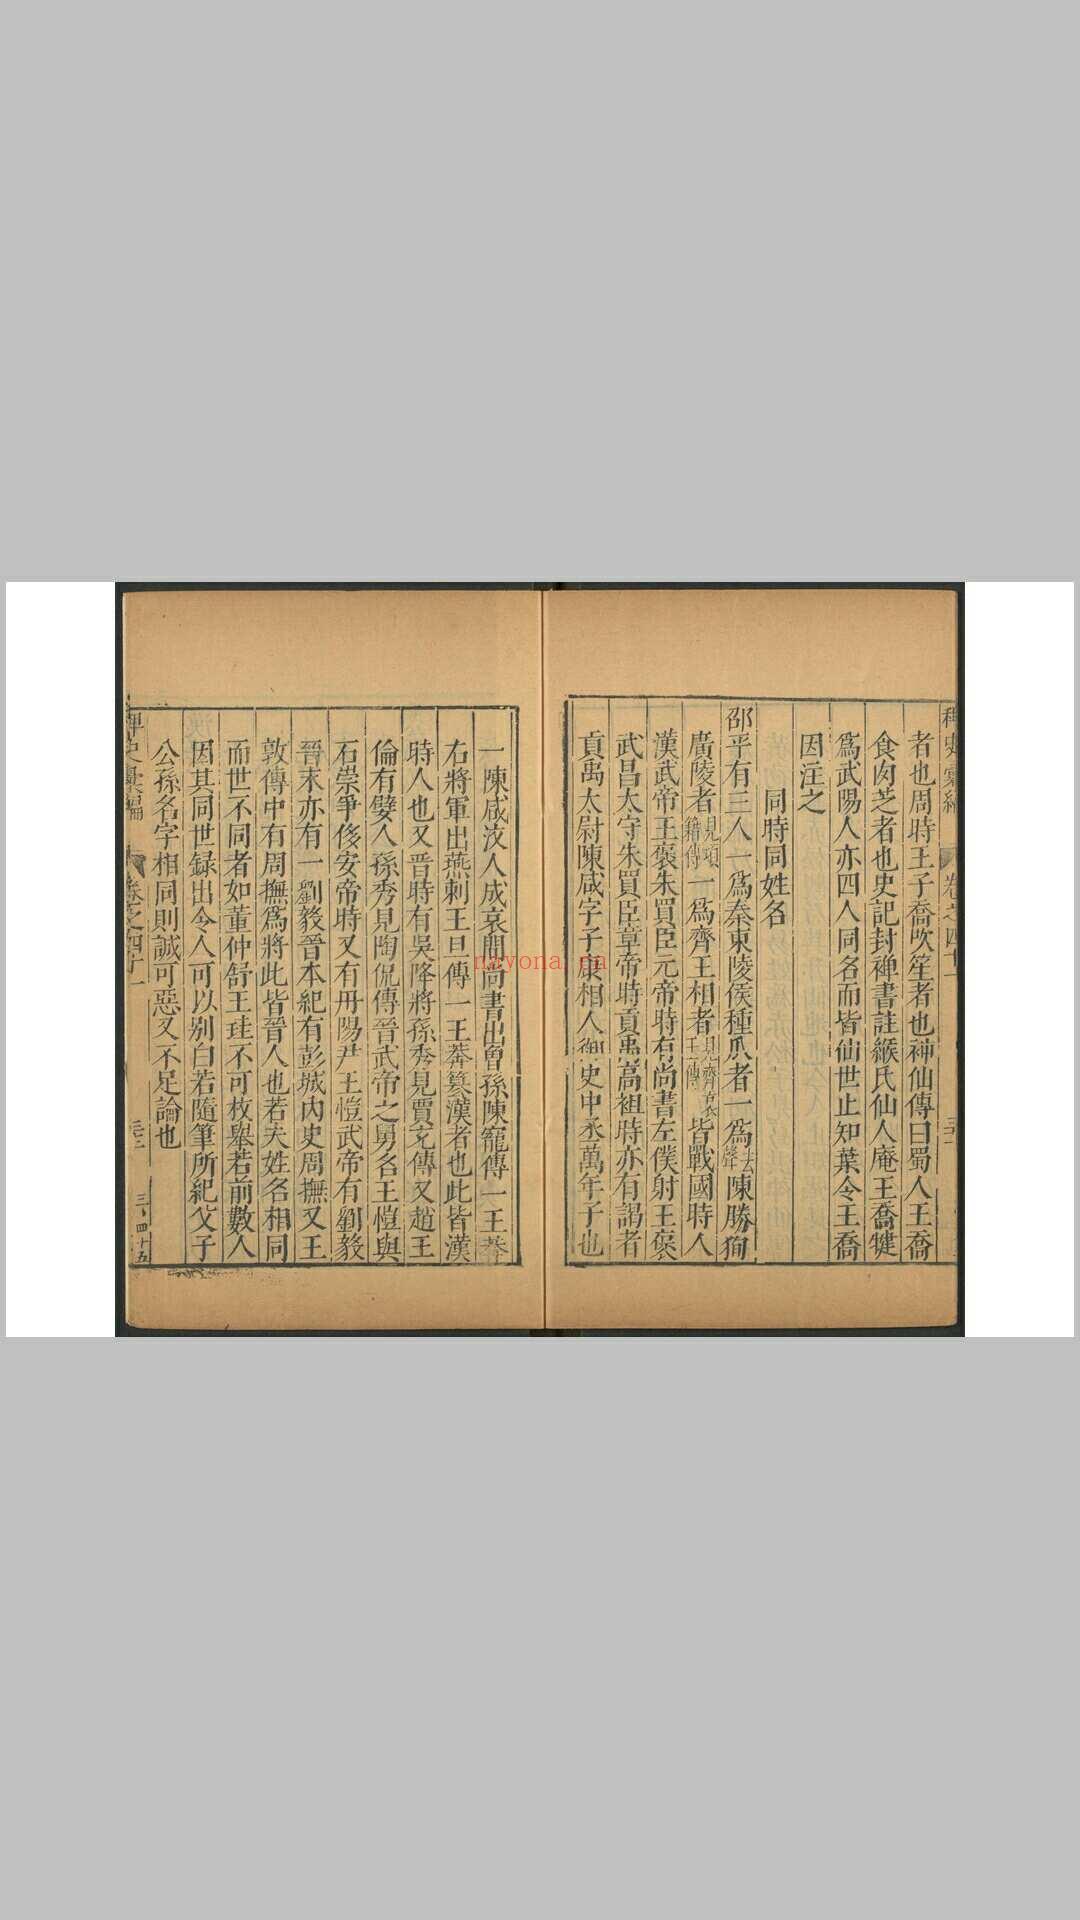 稗史彙編 卷之四十一
者也周時王子喬吹笙者也神仙傳曰蜀人王喬
食肉芝者也史記封禅書註緱氏仙人庵王喬犍
爲武陽人亦四人同名而皆仙世止知葉令王喬
因注之
同時同姓名
邵平有三人一爲秦東陵侯種瓜者一爲去聲陳勝狥
廣陵者見項籍傳一爲齊王相者見齊王傳皆戰國時人
漢武帝王褒朱買臣元帝時有尚書左僕射王褒
武昌太守朱買臣章帝時貢禹高祖時亦有謁者
貢禹太尉陳咸字子康相人御史中丞萬年子也
一陳咸汝人成哀間尚書出曾孫陳寵傳一王莽
右將軍出燕刺王旦傳一王莽篡漢者也此皆漢
時人也又晋時有吳降將孫秀見賈充傳又趙王
倫有嬖人孫秀見陶侃傳晉武帝之舅名王愷與
石崇爭侈安帝時又有丹陽尹王愷武帝有劉毅
晉末亦有一劉毅晉本紀有彭城内史周撫又王
敦傳中有周撫爲將此皆晉人也若夫姓名相同
而世不同者如董仲舒王珪不可枚舉若前數人
因其同世録出令人可以别白若隨筆所紀父子
公孫名字相同則誠可惡又不足論也
稗史彙編 卷之四十一
三、四十五
nayona.cn